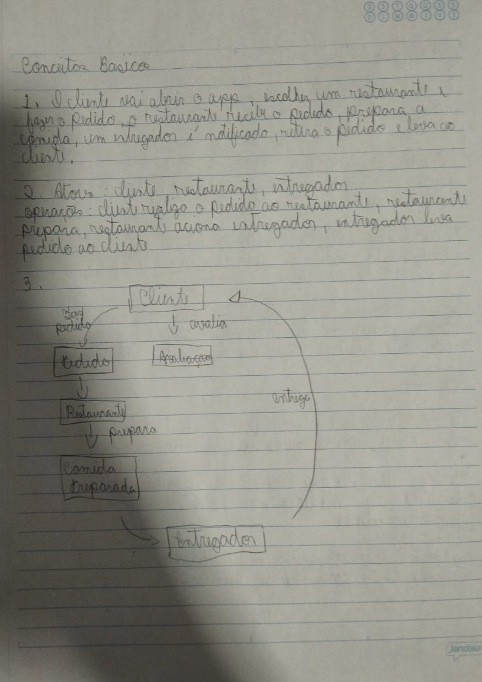 Conceitos Basicos
1. O cliente vai abrir o app, escolher um restaurante e
fazer o pedido, o restaurante recebe o pedido, prepara a
comida, um entregador é notificado, retira o pedido e leva ao
cliente.
2. Atores: cliente, restaurante, entregador
operações: cliente realiza o pedido ao restaurante, restaurante
prepara, restaurante aciona entregador, entregador leva
pedido ao cliente
3.
Cliente
faz
pedido
avalia
Pedido
Avaliação
Restaurante
entrega
prepara
Comida
Preparada
Entregador
jandaia